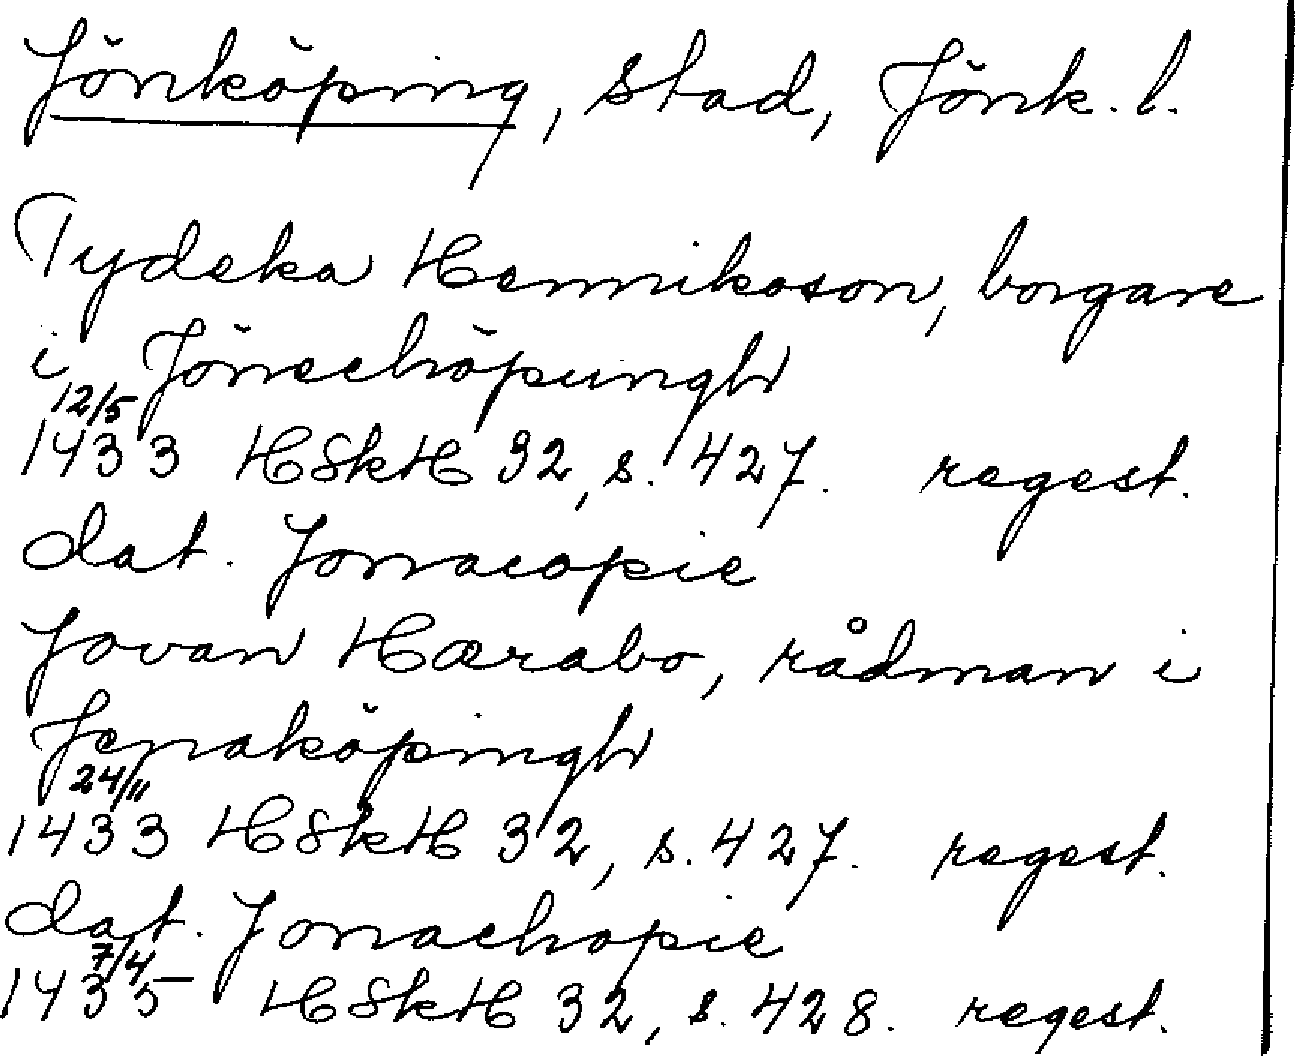 Jönköping, stad, Jönk. l.
Tydeka Henrikason, borgare
i Jönechöpungh
12/5
1433 HSkH 32, s. 427. regest.
dat. Jonacopie
Jovan Hærabo, rådman i
Jenaköpingh
24/11
1433 HSkH 32, s. 427. regest.
dat. Jonachopie
7/4
1435 HSkH 32, s. 428. regest.